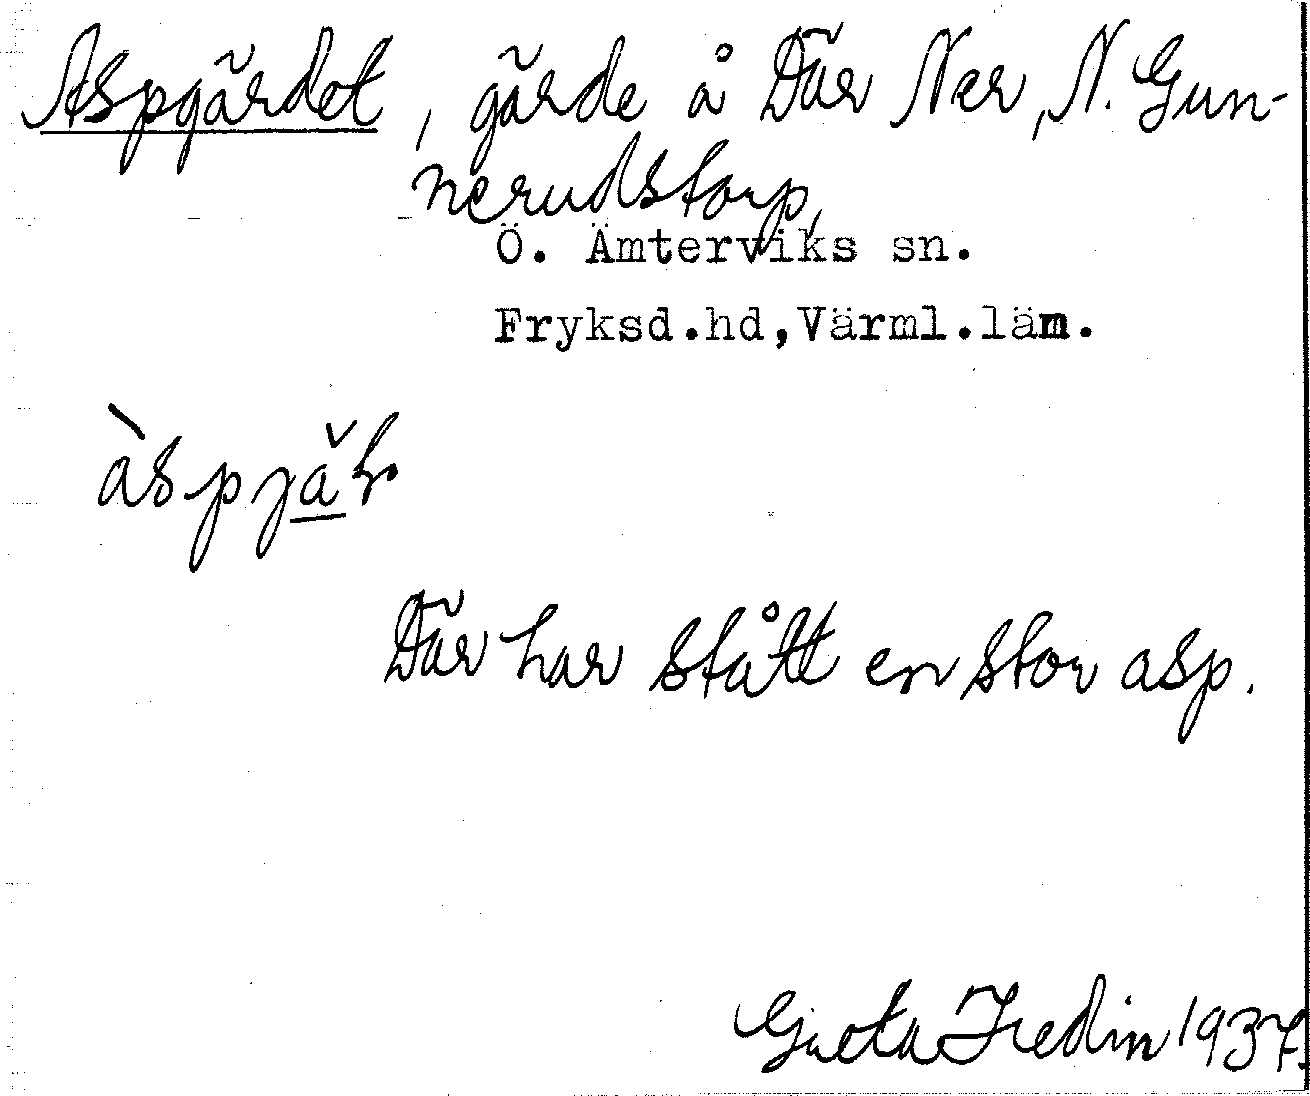 Aspgärdet, gärde å Där Ner, N. Gun-
nerudstorp,
Ö. Ämterviks sn.
Fryksd.hd,Värml.läm.
Där har stått en stor asp.
Greta Hedin 1937.